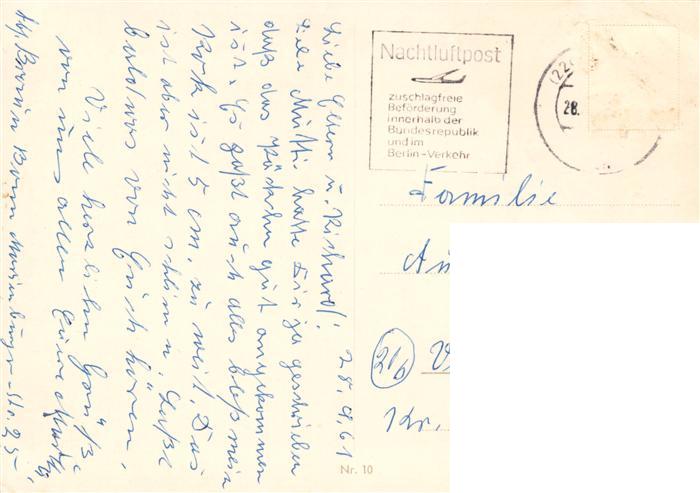 28.9.61
Liebe Eltern u. Richard!
Liebe Mutti hatte Dir ja geschrieben
daß das Päckchen gut angekommen
ist. Es paßt auch alles bloß mein
Rock ist 5 cm. zu weit. Das
ist aber nicht schlim u. Laßt
bald was von Euch hören.
Viele herzlichen Grüße
von uns allen Eure
Bonn Marienburger-Str. 25
Nachtluftpost
zuschlagfreie
Beförderung
innerhalb der
Bundesrepublik
und im
Berlin-Verkehr
(22
28.
Familie
(21b)
Kr.
Nr. 10